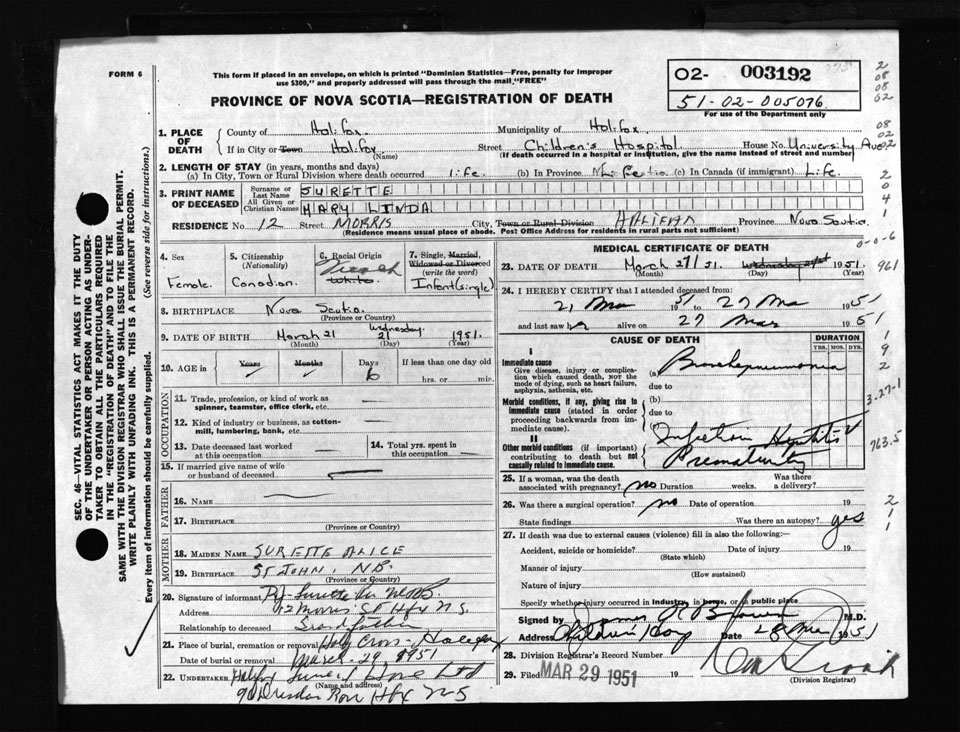 FORM 6
This form if placed in an envelope, on which is printed "Dominion Statistics—Free, penalty for improper
use $300," and properly addressed will pass through the mail, "FREE"
PROVINCE OF NOVA SCOTIA—REGISTRATION OF DEATH
O2- 003192
51-02-005076
For use of the Department only
2
08
08
02
08
02
2
2
0
4
1
0-0-6
961
1
9
2
3-27-1
763.5
2
1
1
SEC. 46—VITAL STATISTICS ACT MAKES IT THE DUTY
OF THE UNDERTAKER OR PERSON ACTING AS UNDER-
TAKER TO OBTAIN ALL THE PARTICULARS REQUIRED
IN THE "REGISTRATION OF DEATH" AND TO FILE THE
SAME WITH THE DIVISION REGISTRAR WHO SHALL ISSUE THE BURIAL PERMIT.
WRITE PLAINLY WITH UNFADING INK. THIS IS A PERMANENT RECORD.
Every item of information should be carefully supplied. (See reverse side for instructions.)
1. PLACE OF DEATH
County of Halifax. Municipality of Halifax.
If in City or Town Halifax. (Name) Street Children's Hospital House No. University Ave.
(If death occurred in a hospital or institution, give the name instead of street and number)
2. LENGTH OF STAY (in years, months and days)
(a) In City, Town or Rural Division where death occurred life. (b) In Province (c) In Canada (if immigrant) Life.
3. PRINT NAME OF DECEASED
Surname or Last Name SURETTE
All Given or Christian Names MARY LINDA
RESIDENCE No. 12 Street MORRIS City, Town or Rural Division HALIFAX Province Nova Scotia
(Residence means usual place of abode. Post Office Address for residents in rural parts not sufficient)
4. Sex
Female.
5. Citizenship
(Nationality)
Canadian.
6. Racial Origin
French
White.
7. Single, Married,
Widowed or Divorced
(write the word)
Infant (single)
8. BIRTHPLACE Nova Scotia.
(Province or Country)
9. DATE OF BIRTH March 21 Wednesday. 21 1951.
(Month) (Day) (Year)
10. AGE in
Years Months Days If less than one day old
6 hrs. or min.
OCCUPATION
11. Trade, profession, or kind of work as
spinner, teamster, office clerk, etc. —
12. Kind of industry or business, as cotton-
mill, lumbering, bank, etc. —
13. Date deceased last worked
at this occupation —
14. Total yrs. spent in
this occupation —
15. If married give name of wife
or husband of deceased
FATHER
16. NAME —
17. BIRTHPLACE
(Province or Country)
MOTHER
18. MAIDEN NAME SURETTE ALICE
19. BIRTHPLACE ST JOHN, NB.
(Province or Country)
20. Signature of informant
Address 12 Morris St Hfx N.S.
Relationship to deceased Grandfather
21. Place of burial, cremation or removal Holy Cross - Halifax
Date of burial or removal March 29, 1951
22. UNDERTAKER Funeral Home Ltd
(Name and address)
90 Dresden Row Hfx N-S
MEDICAL CERTIFICATE OF DEATH
23. DATE OF DEATH March 27/51. Wednesday 1951.
(Month) (Day) (Year)
24. I HEREBY CERTIFY that I attended deceased from:
21 Mar 1951 to 27 Mar 1951
and last saw h alive on 27 Mar 1951
CAUSE OF DEATH
DURATION
YRS. MOS. DYS.
I
Immediate cause
Give disease, injury or complica-
tion which caused death, NOT the
mode of dying, such as heart failure,
asphyxia, asthenia, etc.
(a) Bronchopneumonia
due to
Morbid conditions, if any, giving rise to
immediate cause (stated in order
proceeding backwards from im-
mediate cause).
(b)
due to
(c)
II
Other morbid conditions (if important)
contributing to death but not
causally related to immediate cause.
Infectious Hepatitis
Prematurity
25. If a woman, was the death
associated with pregnancy? no Duration weeks. Was there
a delivery?
26. Was there a surgical operation? no Date of operation 19
State findings Was there an autopsy? yes
27. If death was due to external causes (violence) fill in also the following:—
Accident, suicide or homicide? Date of injury 19
(State which)
Manner of injury
(How sustained)
Nature of injury
Specify whether injury occurred in industry, in home, or in public place
Signed by M.D.
Address Children's Hosp Date 28 Mar 1951
28. Division Registrar's Record Number
29. Filed MAR 29 1951
(Division Registrar)